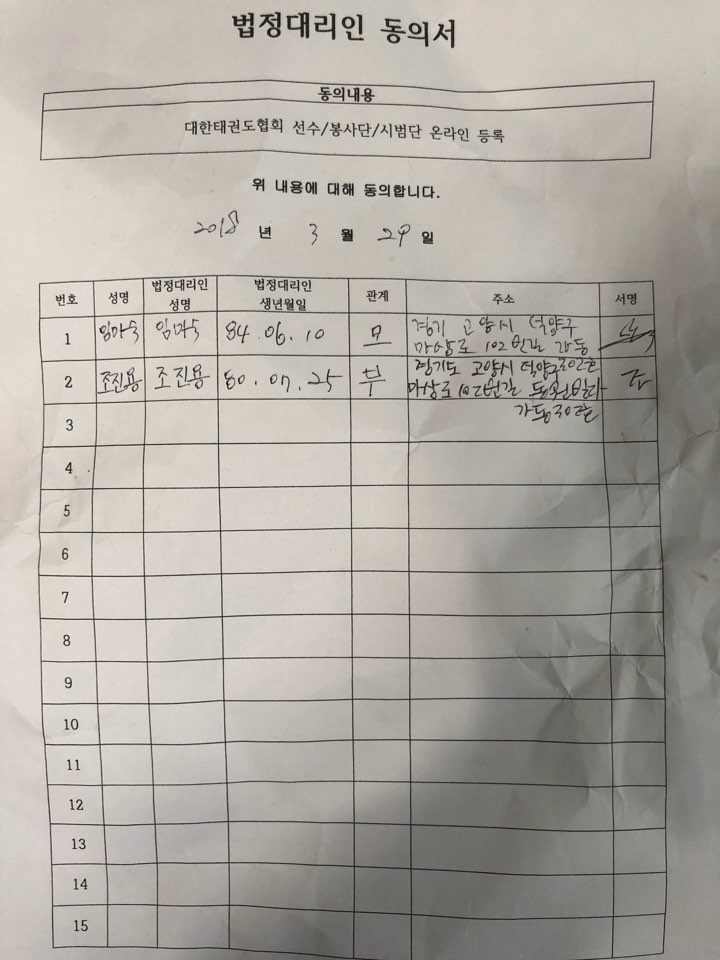 법정대리인 동의서
동의내용
대한태권도협회 선수/봉사단/시범단 온라인 등록
위 내용에 대해 동의합니다.
2018 년 3 월 29 일
번호 성명 법정대리인 성명 법정대리인 생년월일 관계 주소 서명
1 84.06.10 모 경기 고양시 덕양구
마상로 102번길 가동
2 조진용 조진용 80.07.25 부 경기도 고양시 덕양구
마상로 102번길
가동302호
3
4
5
6
7
8
9
10
11
12
13
14
15